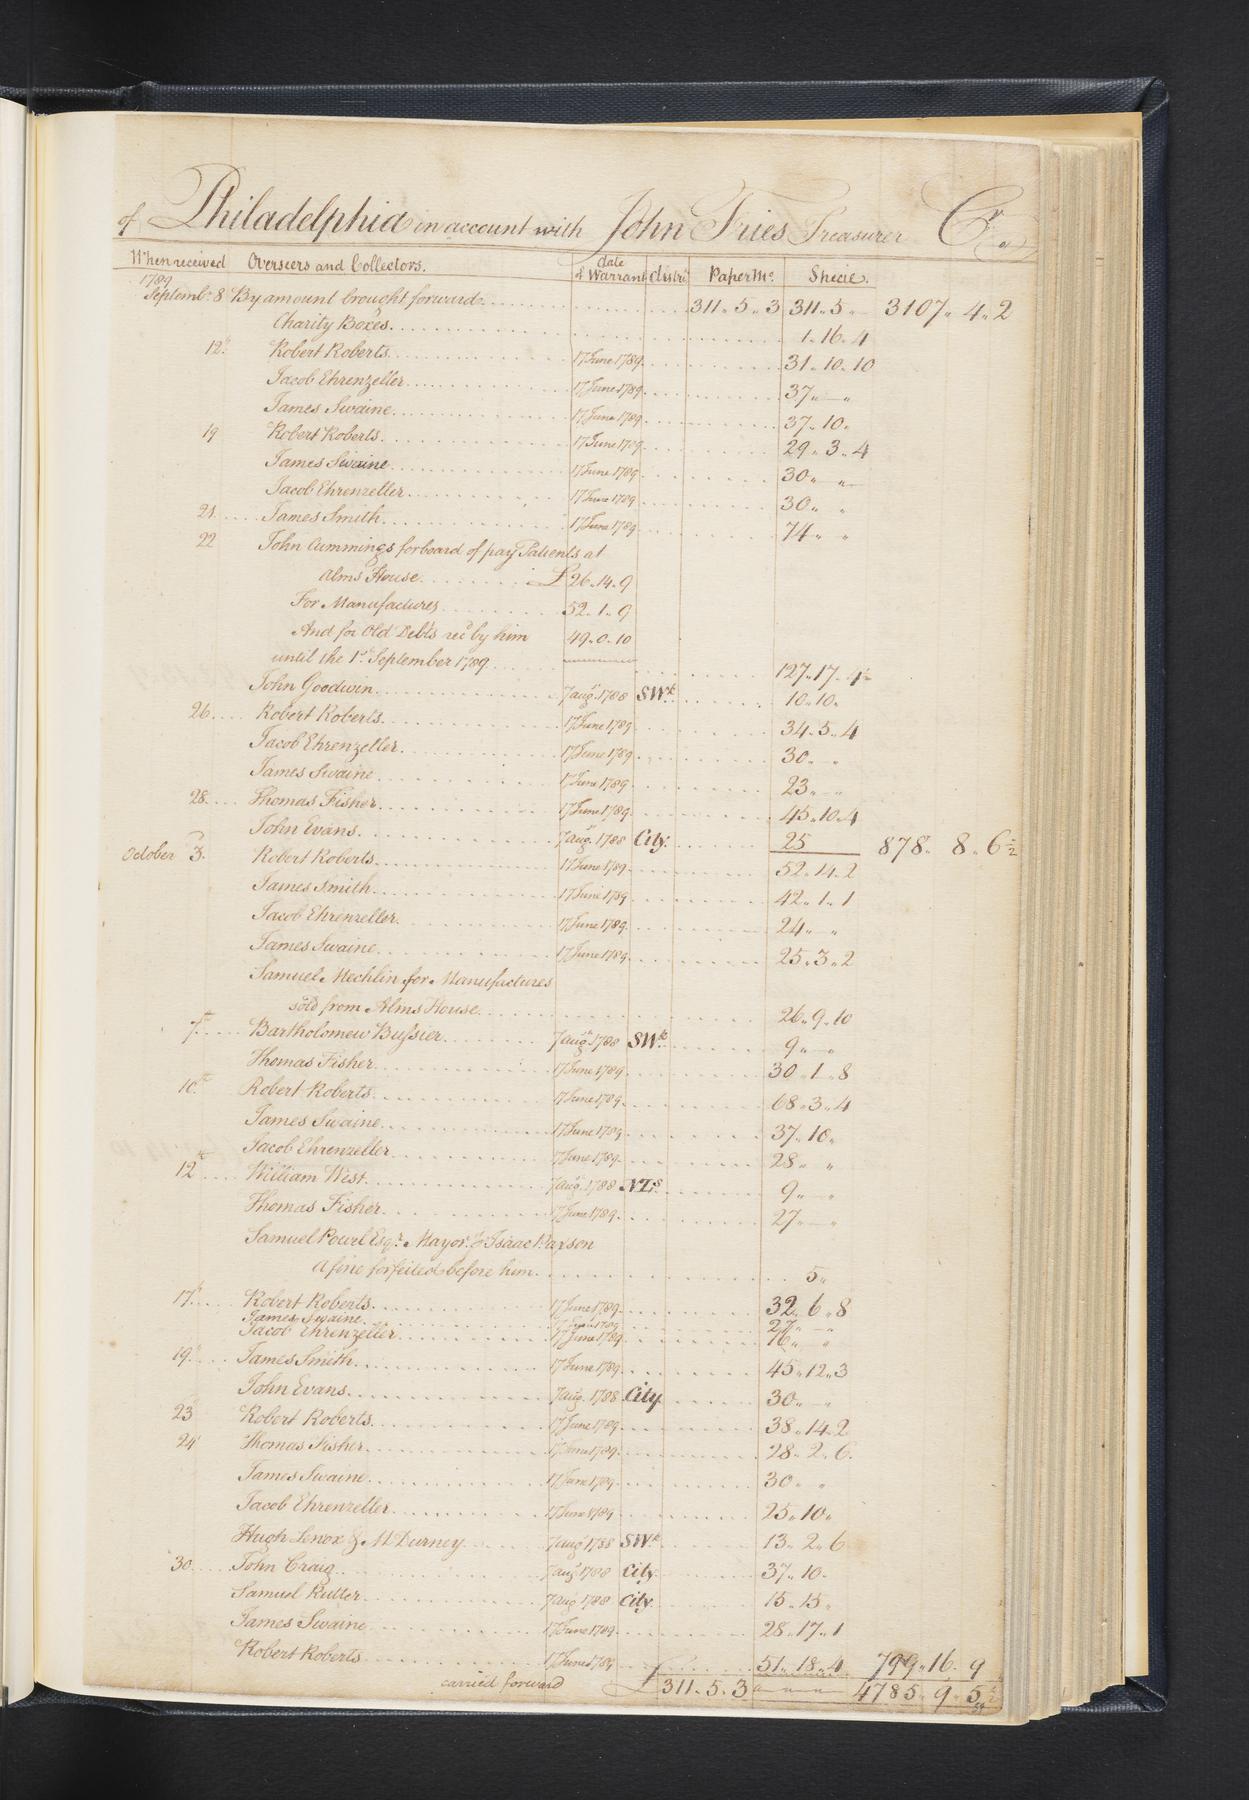 of Philadelphia in account with John Fries Treasurer Cr.
When received Overseers and Collectors. date of Warrant distri. Paper Mo. Specie.
1789
Septembr. 8 By amount brought forward 311..5..3 311..5.. 3107..4..2
Charity Boxes. 1..16..4
12. Robert Roberts. 17 June 1789. 31..10..10
Jacob Ehrenzeller 17 June 1789. 37.. — ..
James Swaine. 17 June 1789 37..10..
19 Robert Roberts. 17 June 1789 29..3..4
James Swaine 17 June 1789 30.. ..
Jacob Ehrenzeller 17 June 1789 30.. ..
21. James Smith. 17 June 1789 74.. ..
22 John Cummings for board of pay Patients at
Alms House. £26..14..9
For Manufactures 52..1..9
And for Old Debts recd by him 49..0..10
until the 1st. September 1789. 127..17..4½
John Goodwin. 7 augt. 1788 SWk. 10..10..
26. Robert Roberts. 17 June 1789. 34..5..4
Jacob Ehrenzeller. 17 June 1789. 30.. ..
James Swaine 17 June 1789. 23.. ..
28. Thomas Fisher. 17 June 1789. 45..10..4
John Evans. 7 augt. 1788 City. 25 878.. 8..6½
October 3. Robert Roberts. 17 June 1789. 52..14..2
James Smith. 17 June 1789. 42..1..1
Jacob Ehrenzeller. 17 June 1789. 24.. ..
James Swaine. 17 June 1789. 25..3..2
Samuel Mechlin for Manufactures
sold from Alms House. 26..9..10
7th Bartholomew Bussier. 7 augt. 1788 SWk. 9.. — ..
Thomas Fisher. 17 June 1789. 30..1..8
10.th Robert Roberts. 17 June 1789. 68..3..4
James Swaine. 17 June 1789. 37..10..
Jacob Ehrenzeller 17 June 1789. 28.. ..
12th William West. 7 augt. 1788 NLs. 9.. — ..
Thomas Fisher. 17 June 1789. 27.. — ..
Samuel Powel Esqr. Mayor. of Isaac Paxson
a fine forfeited before him. 5..
17. Robert Roberts. 17 June 1789. 32..6..8
James Swaine. 17 June 1789 27.. — ..
Jacob Ehrenzeller. 17 June 1789 16.. ..
19. James Smith. 17 June 1789. 45..12..3
John Evans. 7 augt. 1788 City 30.. — ..
23 Robert Roberts. 17 June 1789. 38..14..2
24 Thomas Fisher. 17 June 1789. 28..2..6.
James Swaine. 17 June 1789. 30.. ..
Jacob Ehrenzeller. 17 June 1789 25..10..
Hugh Lenox & 7 augt 1788 SWk. 13..2..6
30. John Craig. 7 augt 1788 City. 37..10.
Samuel Rutter. 7 augt 1788 City. 15..15..
James Swaine. 17 June 1789. 28..17..1
Robert Roberts 17 June 1789 51..18..4. 799..16..9
carried forward £311..5..3 4785..9..5½